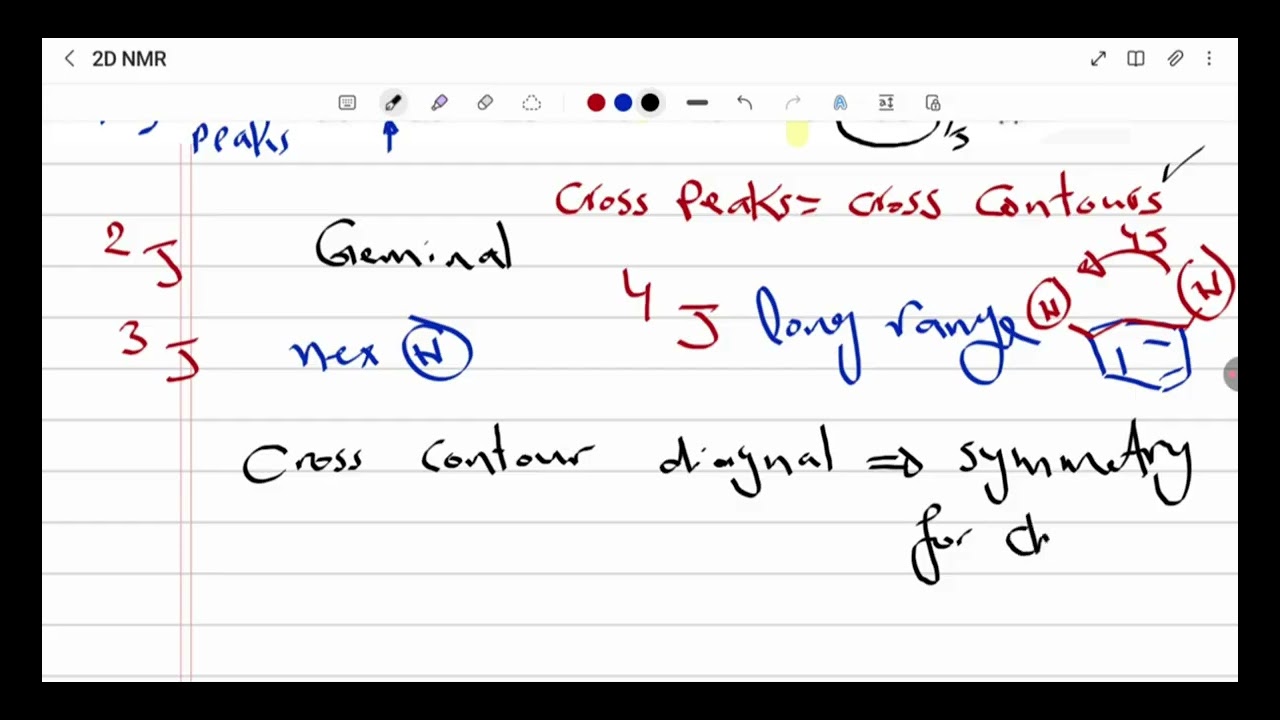 2D NMR
peaks
Cross Peaks = Cross Contours
2J Geminal
4J
3J nex H
4J long range H H
Cross contour diagnal ⇒ symmetry
for ch